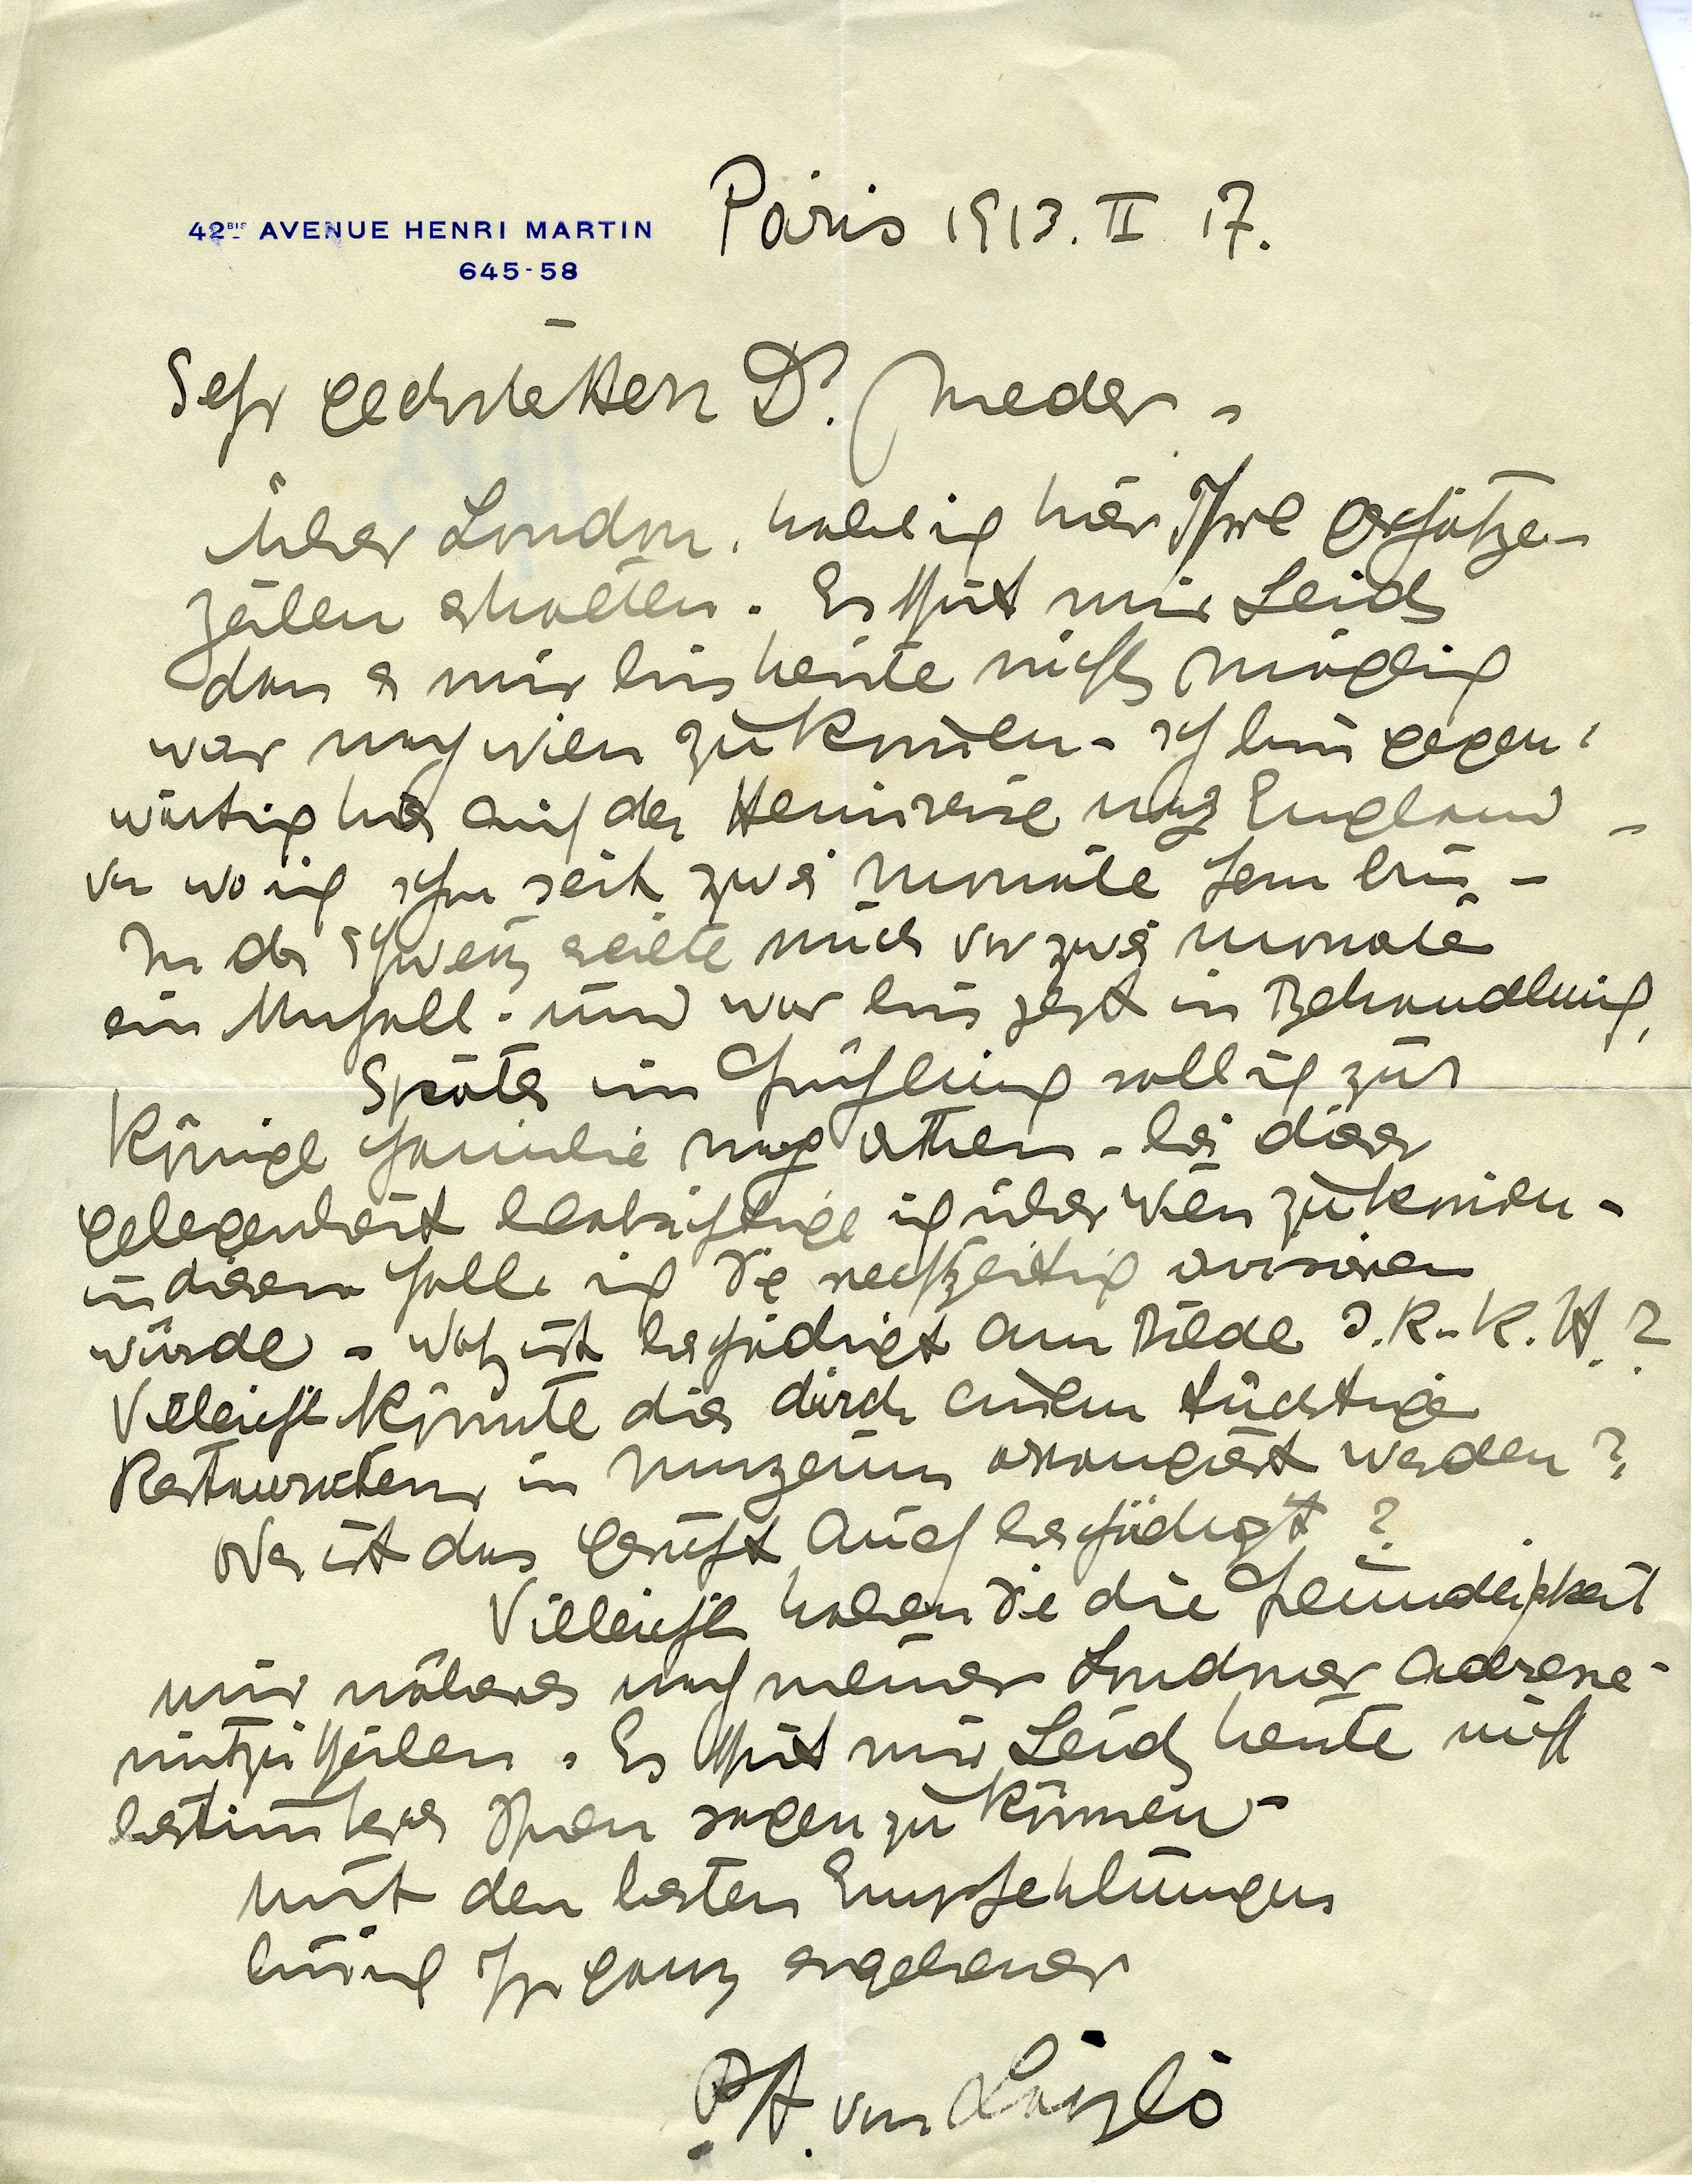 42BIS AVENUE HENRI MARTIN
645-58
Paris 1913. II 17.
Sehr geehrter Herr Dr. Meder -
Über London, habe ich hier Ihre geschätzen
Zeilen erhalten. Es thut mir Leid
dass es mir bis heute nicht möglich
war nach Wien zu kommen - ich bin gegen-
wärtig hier auf der Heimreise nach England -
von wo ich schon seit zwei Monate fern bin -
In der Schweiz ereilte mich vor zwei Monate
ein Unfall - und war bis jezt in Behandlung,
Später im Frühling soll ich zur
Königl Familie nach Athen - bei dieser
gelegenheit beabsichtige ich über Wien zu kommen -
in diesem Falle ich Sie rechtzeitig avisieren
würde - Was ist beschädigt am Bilde I. K. K. H.?
Vielleicht könnte dies durch einen tüchtigen
Restaurateur in Muzeum arrangiert werden?
Oder ist das Gesicht auch beschädigt?
Vielleicht haben Sie die Freundlichkeit
mir näheres nach meiner Londoner Adresse
mitzutheilen. Es thut mir Leid heute nicht
bestimteres Ihnen sagen zu können -
mit den besten Empfehlungen
bin ich Ihr ganz ergebener
P.A. von László